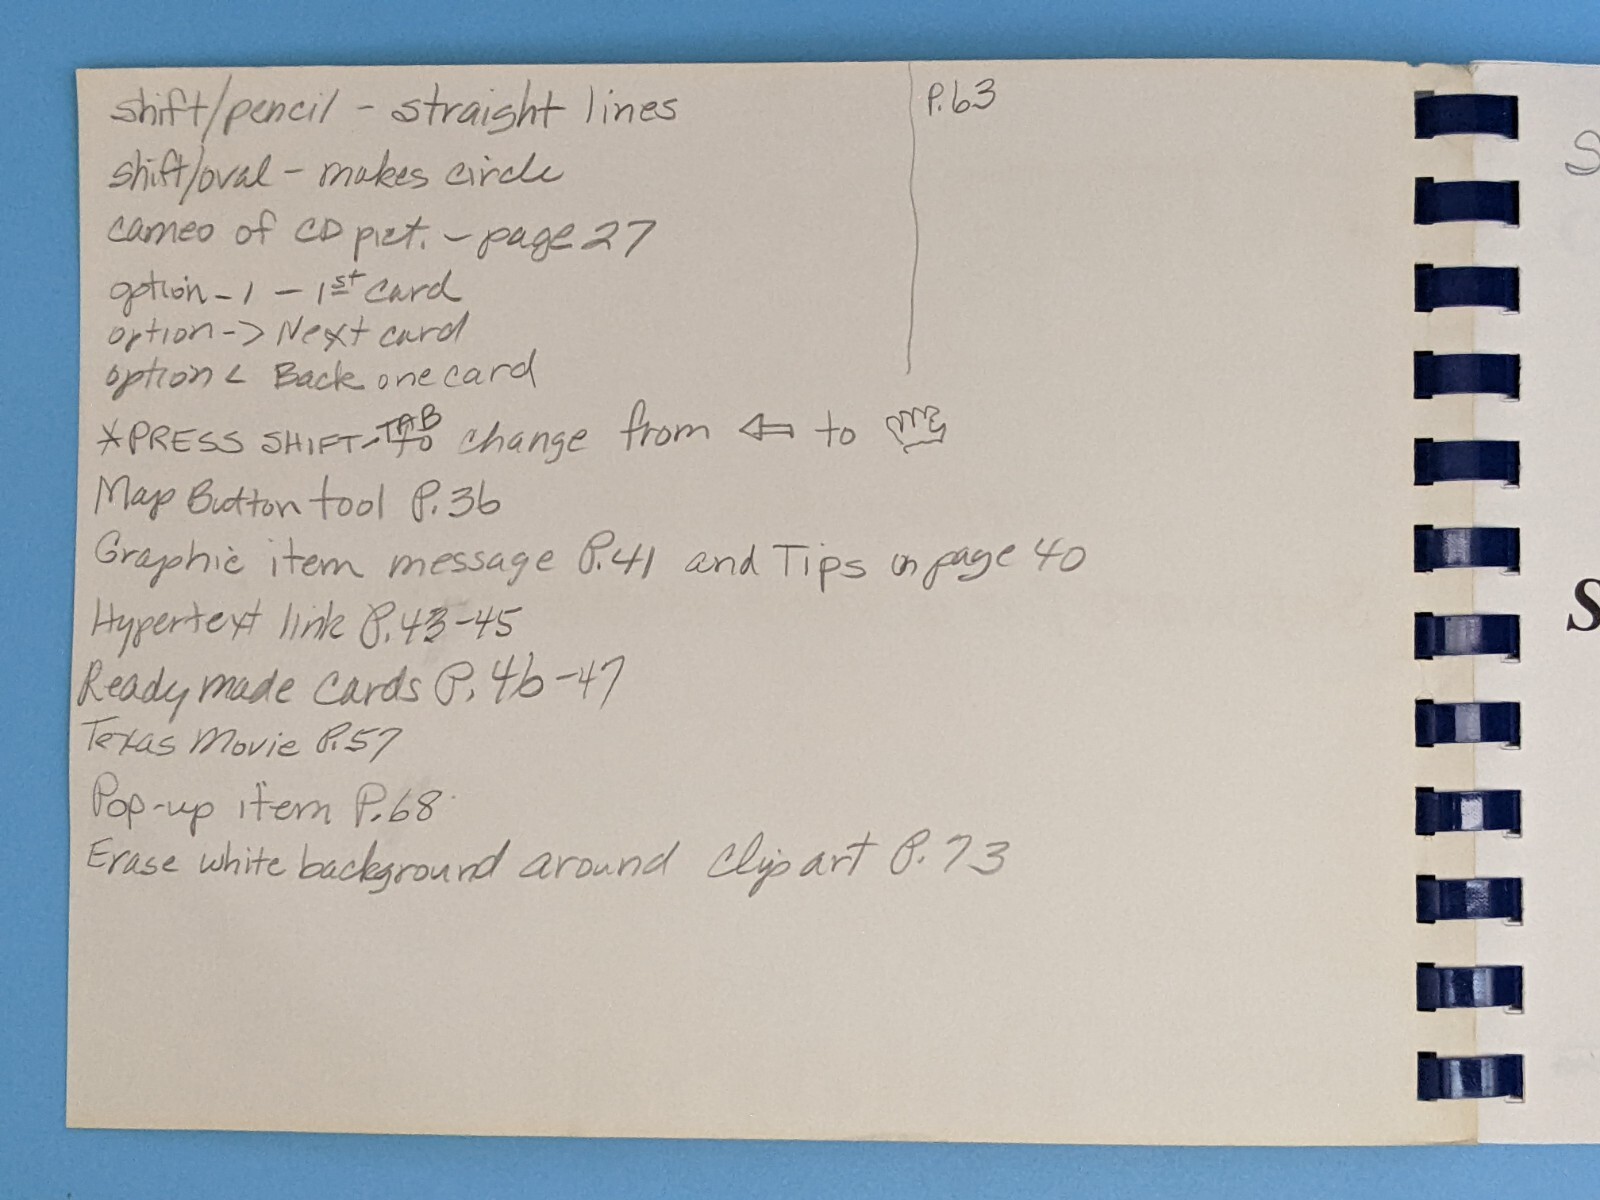 shift/pencil - straight lines
P.63
shift/oval - makes circle
cameo of CD pict. - page 27
option - 1 - 1st card
option -> Next card
option < Back one card
*PRESS SHIFT-TAB to change from ⇦ to
Map Button tool P.36
Graphic item message P.41 and Tips on page 40
Hypertext link P.43-45
Ready made cards P.46-47
Texas Movie P.57
Pop-up item P.68
Erase white background around clip art P.73
S
S